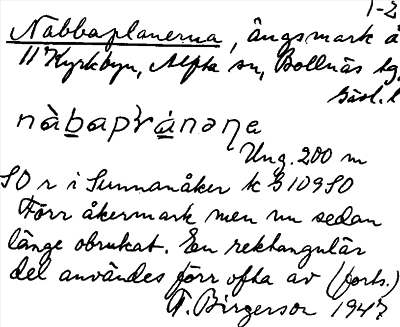 1-2
Nabbaplanerna, ängsmark å
11 Kyrkbyn, Alfta sn, Bollnäs tg,
Gävl. l
nàbapránəṇa
Ung. 200 m
SO r i Sunnanåker k B 109 SO
Förr åkermark men nu sedan
länge obrukat. En rektangulär
del användes förr ofta av (forts.)
T. Birgerson 1947